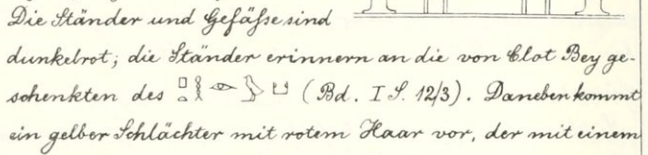 Die Ständer und Gefäße sind
dunkelrot; die Ständer erinnern an die von Clot Bey ge-
schenkten des 𓊪𓏏𓎛𓁹𓅱𓂓 (Bd. I S. 12/3). Daneben kommt
ein gelber Schlächter mit rotem Haar vor, der mit einem